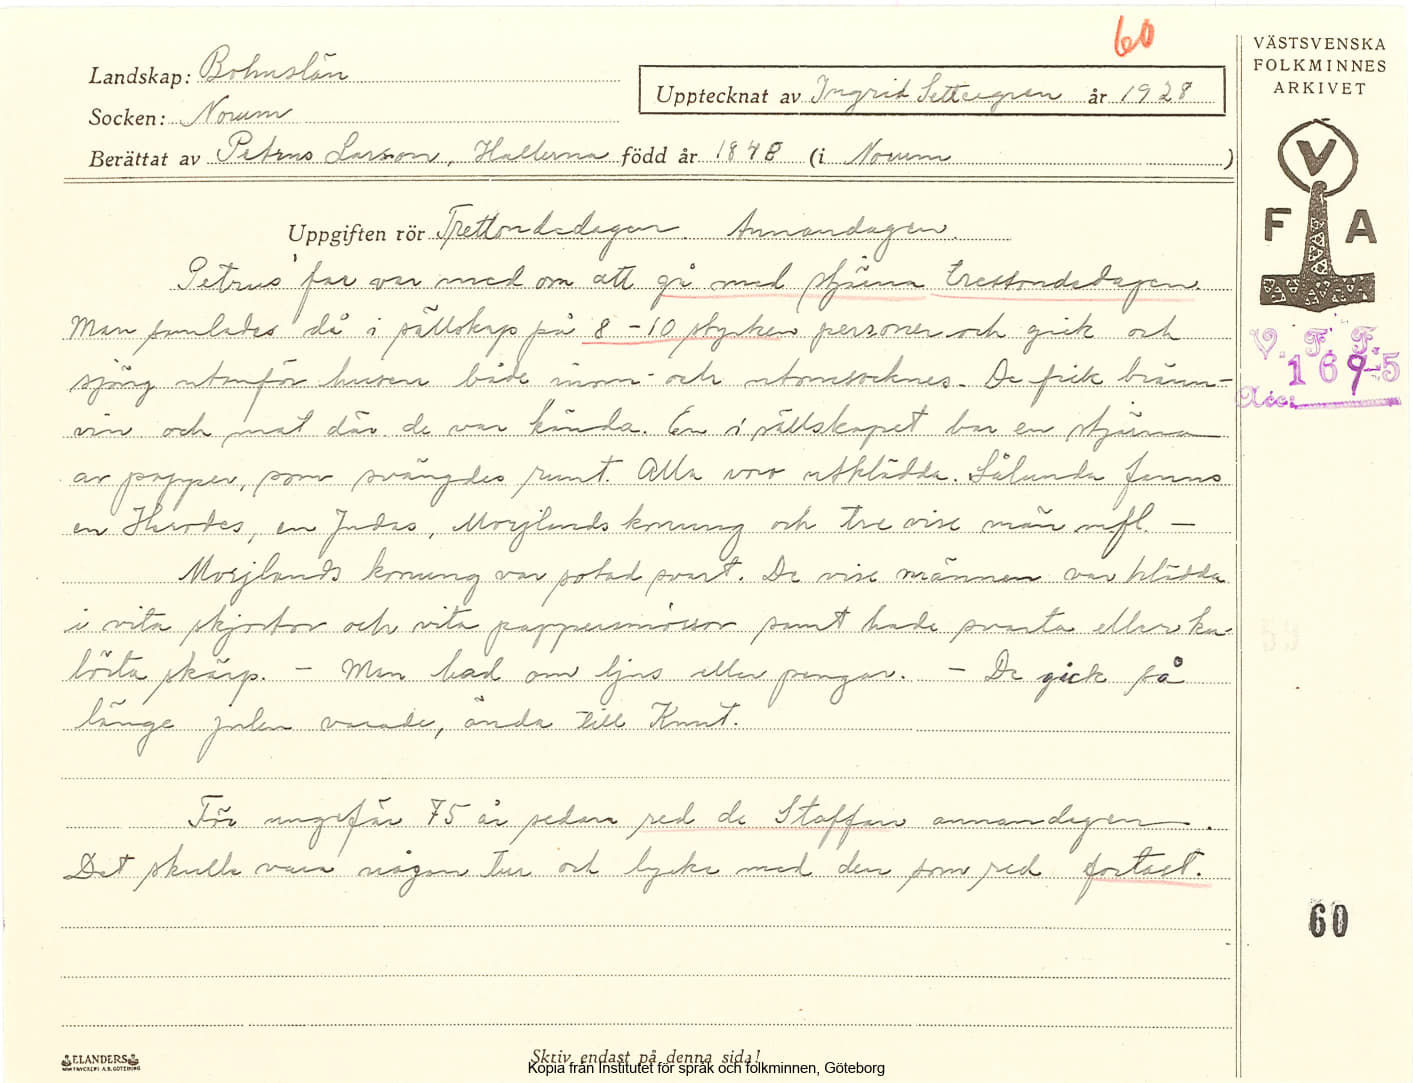 60
VÄSTSVENSKA
FOLKMINNES
ARKIVET
Landskap: Bohuslän
Upptecknat av Ingrid Settergren år 1928
Socken: Norum
Berättat av Petrus Larson, Hallerna född år 1848 (i Norum)
V
F A
Uppgiften rör Trettondedagen. Annandagen.
Petrus' far var med om att gå med stjärna trettondedagen.
Man samlades då i sällskap på 8-10 stycken personer och gick och
sjöng utanför husen både inom- och utomsocknes. De fick bränn-
vin och mat där de var kända. En i sällskapet bar en stjärna
av papper, som svängdes runt. Alla voro utklädda. Sålunda fanns
en Herodes, en Judas, Morjlands konung och tre vise män mfl. -
Morjlands konung var sotad svart. De vise männen var klädda
i vita skjortor och vita pappersmössor samt hade svarta eller ku-
lörta skärp. - Man bad om ljus eller pengar. - De gick så
länge julen varade, ända till Knut.
För ungefär 75 år sedan red de Staffan annandagen.
Det skulle vara någon tur och lycka med den som red fortast.
V. F. F.
169-5
Acc:
59
60
ELANDERS
Skriv endast på denna sida!
Kopia från Institutet för språk och folkminnen, Göteborg